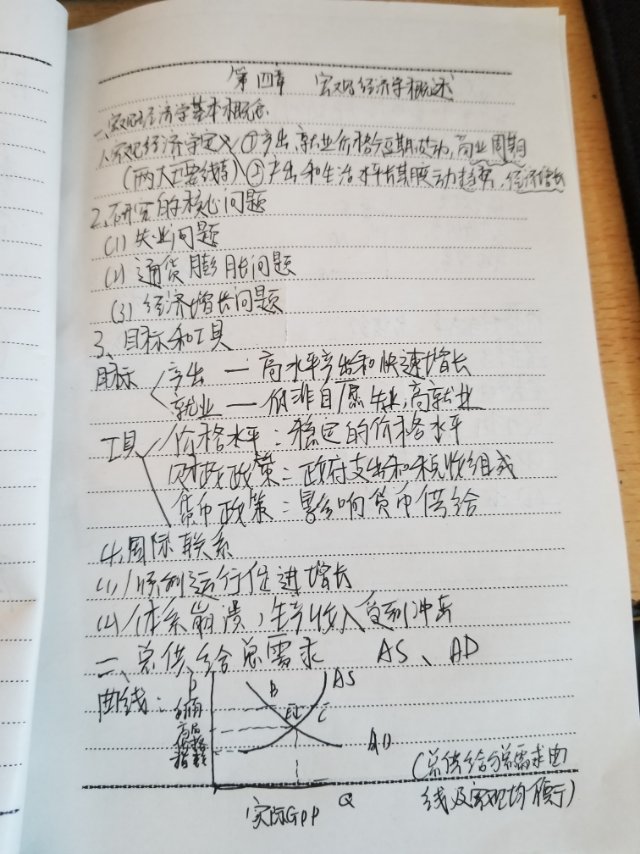 第四章 宏观经济学概述
一、宏观经济学基本概念
1、宏观经济学定义 ①产出、就业价格短期波动,商业周期
(两大主要线索) ②产出和生活水平长期变动趋势,经济增长
2、研究的核心问题
(1) 失业问题
(2) 通货膨胀问题
(3) 经济增长问题
3、目标和工具
目标 产出 — 高水平产出和快速增长
就业 — 低非自愿失业,高就业
工具 价格水平:稳定的价格水平
财政政策:政府支出和税收组成
货币政策:影响货币供给
4.国际联系
(1) 顺利运行促进增长
(2) 体系崩溃,生产收入受到冲击
二、总供给总需求 AS、AD
曲线: P B AS
E C
价格 AD
(总供给与总需求曲
线及宏观均衡)
实际GPP Q